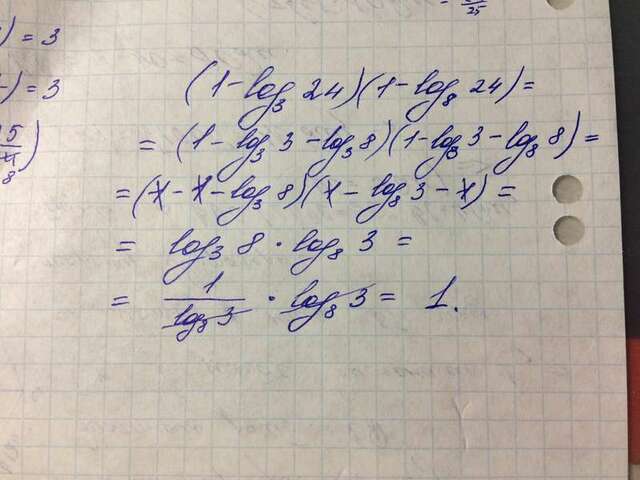 ) = 3
) = 3
(1 - log₃ 24)(1 - log₈ 24) =
= (1 - log₃ 3 - log₃ 8)(1 - log₈ 3 - log₈ 8) =
= (1 - 1 - log₃ 8)(1 - log₈ 3 - 1) =
= log₃ 8 · log₈ 3 =
= 1/log₈ 3 · log₈ 3 = 1.